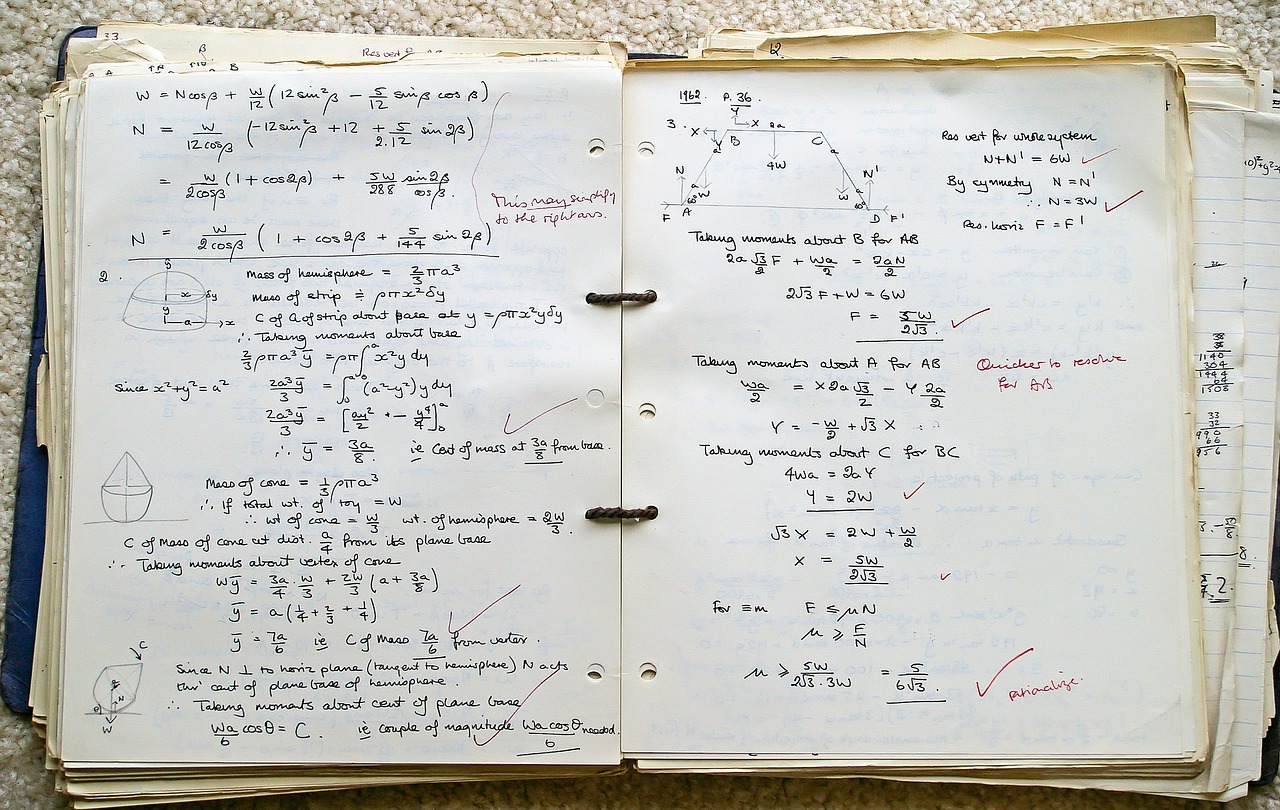 33.
β
Res vert
B
W = Ncosβ + W/12 (12sin²β − 5/12 sinβ cosβ)
N = W/12cosβ (−12sin²β + 12 + 5/2.12 sin2β)
= W/2cosβ (1 + cos2β) + 5W/288 sin2β/cosβ.
This may simplify
to the right ans.
N = W/2cosβ (1 + cos2β + 5/144 sin2β)
2.
y
x δy
y
a x
Mass of hemisphere = 2/3 πa³
Mass of strip ≑ ρπx²δy
C of G of strip about base at y = ρπx²yδy
∴ Taking moments about base
2/3 ρπa³ȳ = ρπ∫₀ᵃ x²y dy
Since x²+y²=a² 2a³ȳ/3 = ∫₀ᵃ (a²−y²)y dy
2a³ȳ/3 = [ay²/2 − y⁴/4]₀ᵃ
∴ ȳ = 3a/8 ie Cent of mass at 3a/8 from base.
Mass of cone = 1/3 ρπa³
∴ If total wt. of toy = W
∴ wt of cone = W/3 wt. of hemisphere = 2W/3.
C of Mass of cone at dist. a/4 from its plane base
∴ Taking moments about vertex of cone
Wȳ = 3a/4 · W/3 + 2W/3 (a + 3a/8)
ȳ = a(1/4 + 2/3 + 1/4)
ȳ = 7a/6 ie C of Mass 7a/6 from vertex.
C
N
θ
W
Since N ⊥ to horiz plane (tangent to hemisphere) N acts
thro' cent of plane base of hemisphere.
∴ Taking moments about cent of plane base
Wa/6 cosθ = C. ie couple of magnitude Wa cosθ/6 needed.
12.
1962. P. 36.
3. X Y X 2a
B C
Y a 4W a
N a W W a N'
60° 60°
F A D F'
Res vert for whole system
N+N' = 6W
By symmetry N = N'
∴ N = 3W
Res. horiz F = F'
Taking moments about B for AB
2a √3/2 F + Wa/2 = 2aN/2
2√3 F + W = 6W
F = 5W/2√3.
Taking moments about A for AB
Quicker to resolve
for AB
Wa/2 = X 2a √3/2 − Y 2a/2
Y = −W/2 + √3 X
Taking moments about C for BC
4Wa = 2aY
Y = 2W
√3 X = 2W + W/2
X = 5W/2√3
For ≡m F ≤ μN
μ ≥ F/N
μ ≥ 5W/2√3.3W = 5/6√3.
rationalize.
38
38
1140
304
1444
64
1508
33
32
990
66
956